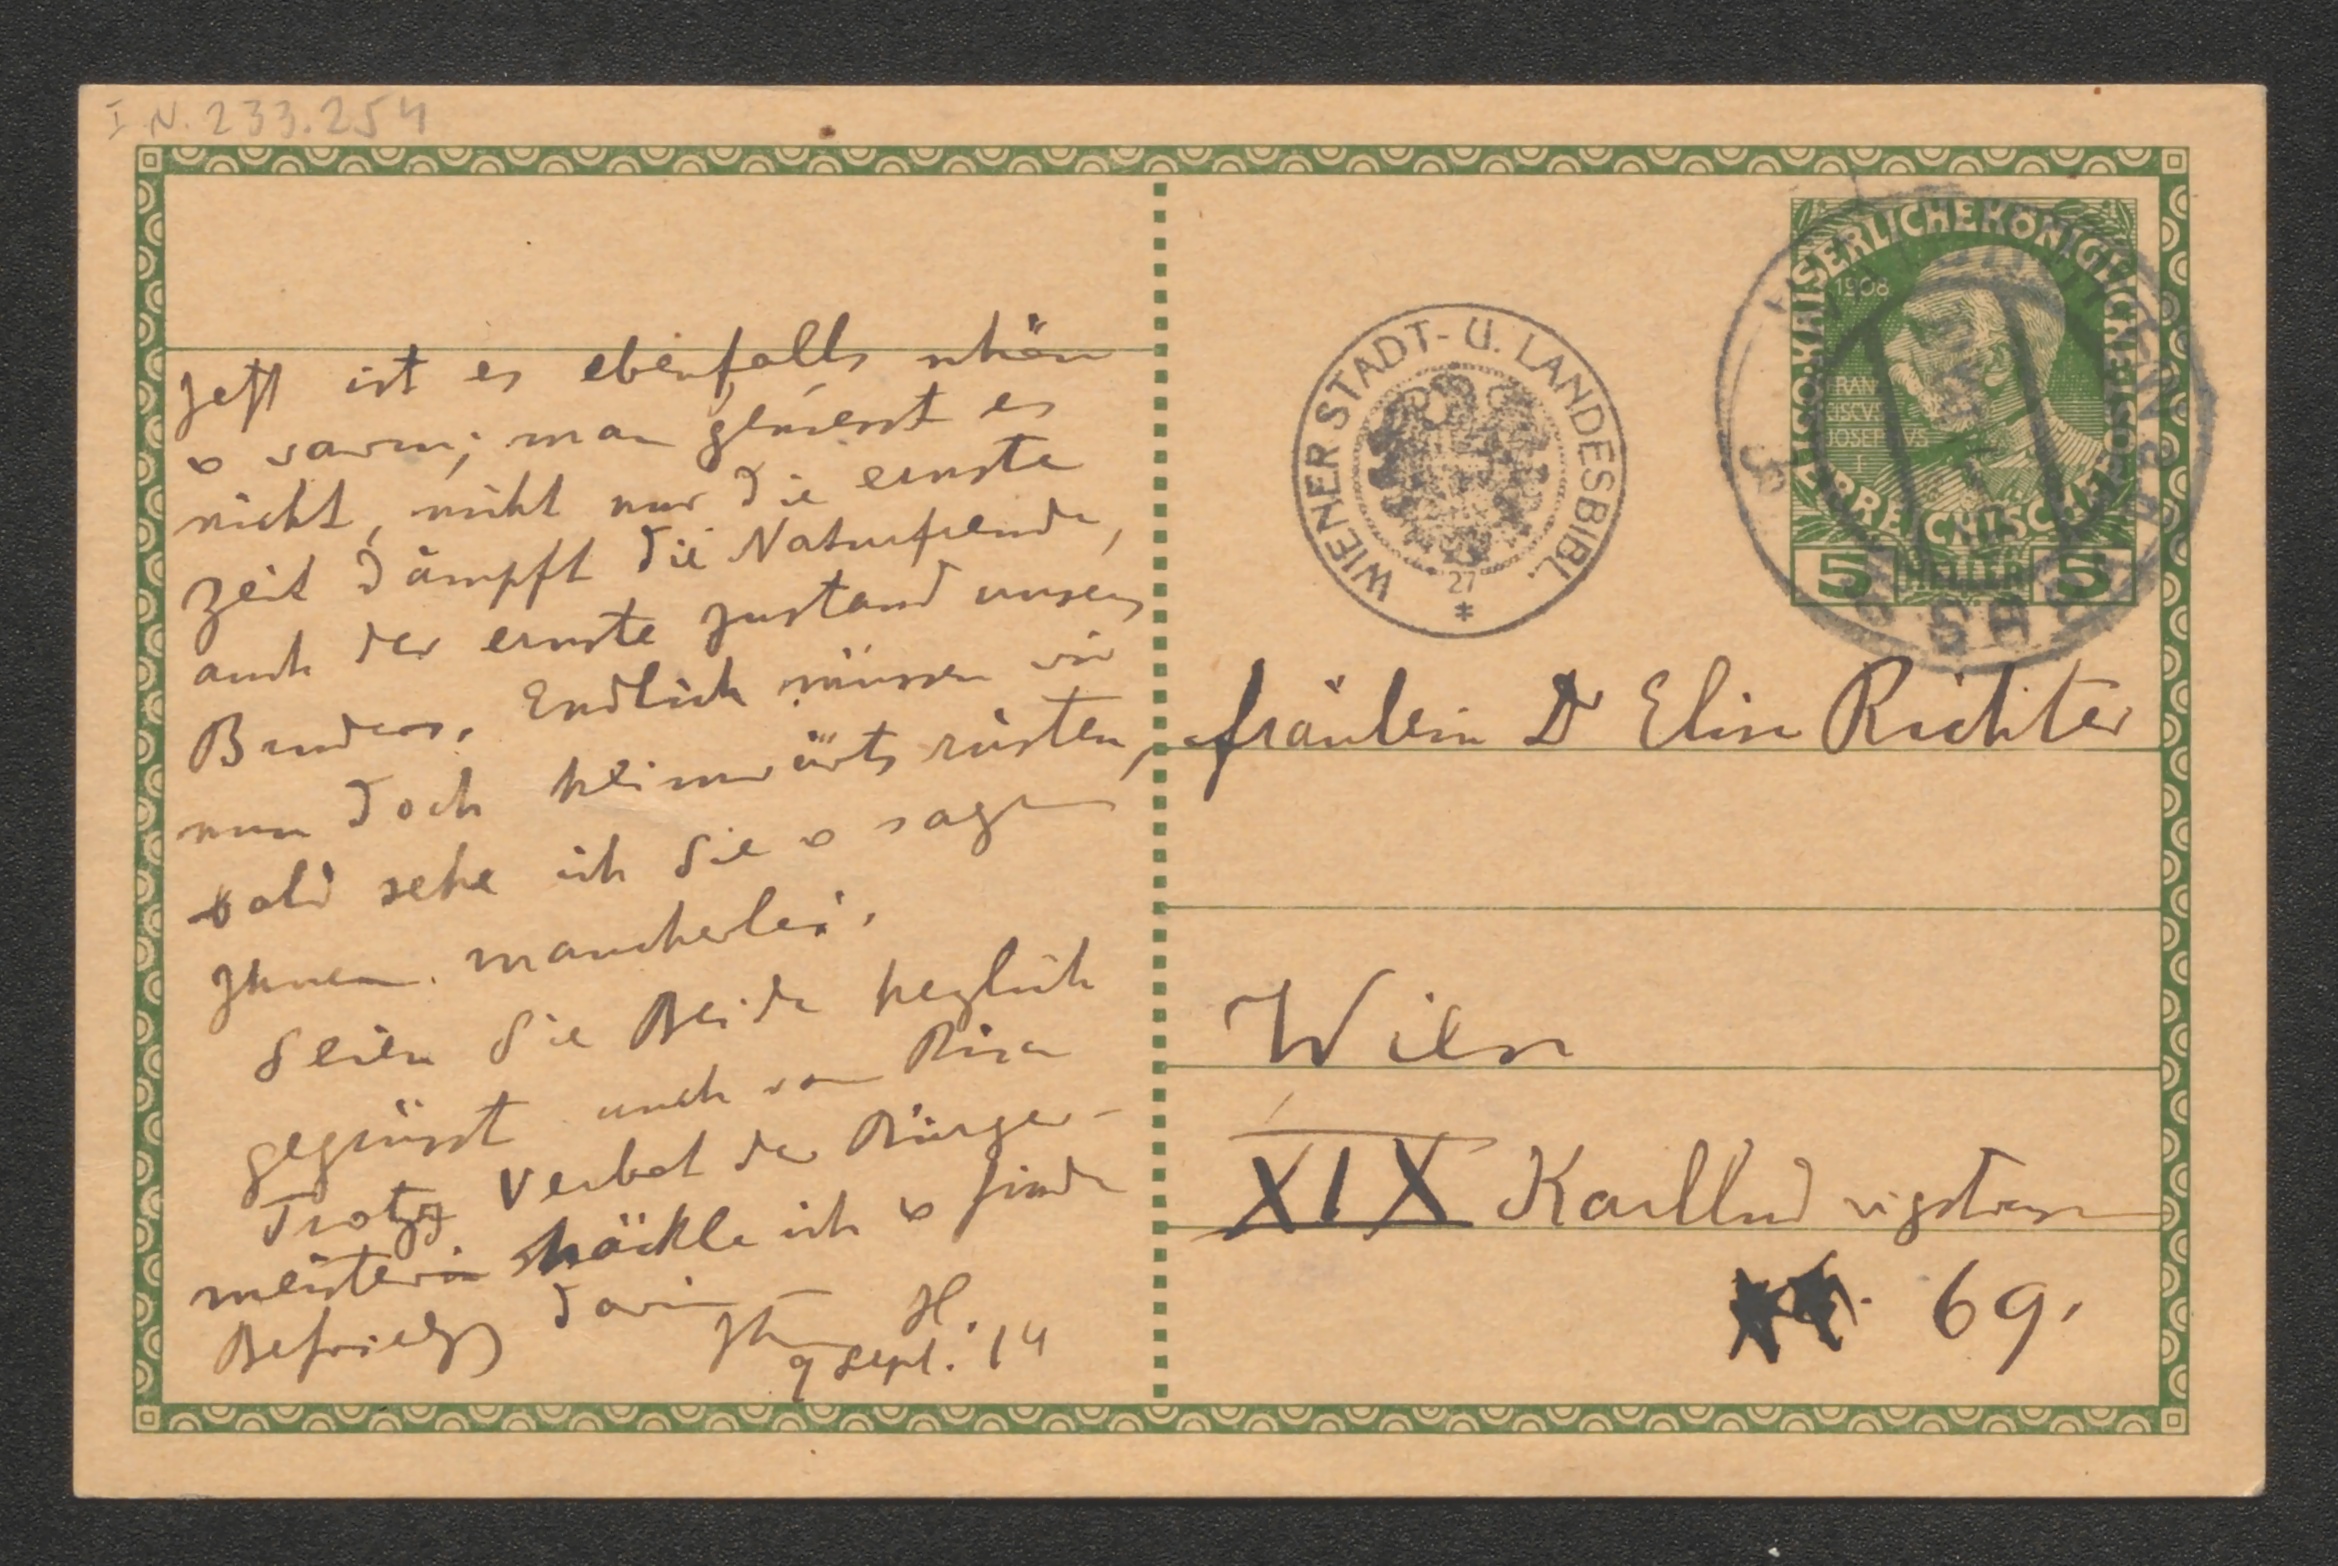 I N. 233.254
Jetzt ist es ebenfalls schön
u warm; man geniesst es
nicht, nicht nur die ernste
Zeit dämpft die Naturfreude,
auch der ernste Zustand unseres
Bruders. Endlich müssen wir
nun doch heimwärts rüsten,
bald sehe ich Sie u sage
Ihnen mancherlei.
Seien Sie Beide herzlich
gegrüsst auch von
Trotz Verbot der Bürger-
meisterin häckle ich u finde
Befriedg darin
Ihre H.
9 Sept. 14
WIENER STADT- U. LANDESBIBL.
27
KAISERLICHE KÖNIGLICHE
ÖSTERREICHISCHE
1908
FRAN
CISCVS
JOSEPHVS
I
5 HELLER 5
Fräulein Dr Elise Richter
Wien
XIX Karlludwigstrasse
69.